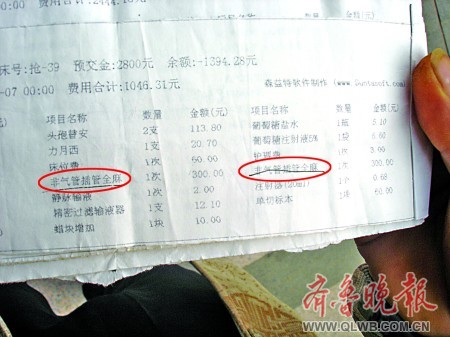 床号:抢-39 预交金:2800元 余额:-1394.28元
-07 00:00 费用合计:1046.31元 森益特软件制作
项目名称 数量 金额(元) 项目名称 数量 金额(元)
头孢替安 2支 113.80 葡萄糖盐水 1瓶 5.10
力月西 1支 20.70 葡萄糖注射液5% 8.00
床位费 1次 60.00 护理费
非气管插管全麻 1次 300.00 非气管插管全麻 1次 300.00
静脉输液 1次 注射器(20ml) 1支 0.68
精密过滤输液器 1支 12.10 单切标本 1次 60.00
蜡块增加 1块 10.00
齐鲁晚报
WWW.QLWB.COM.CN